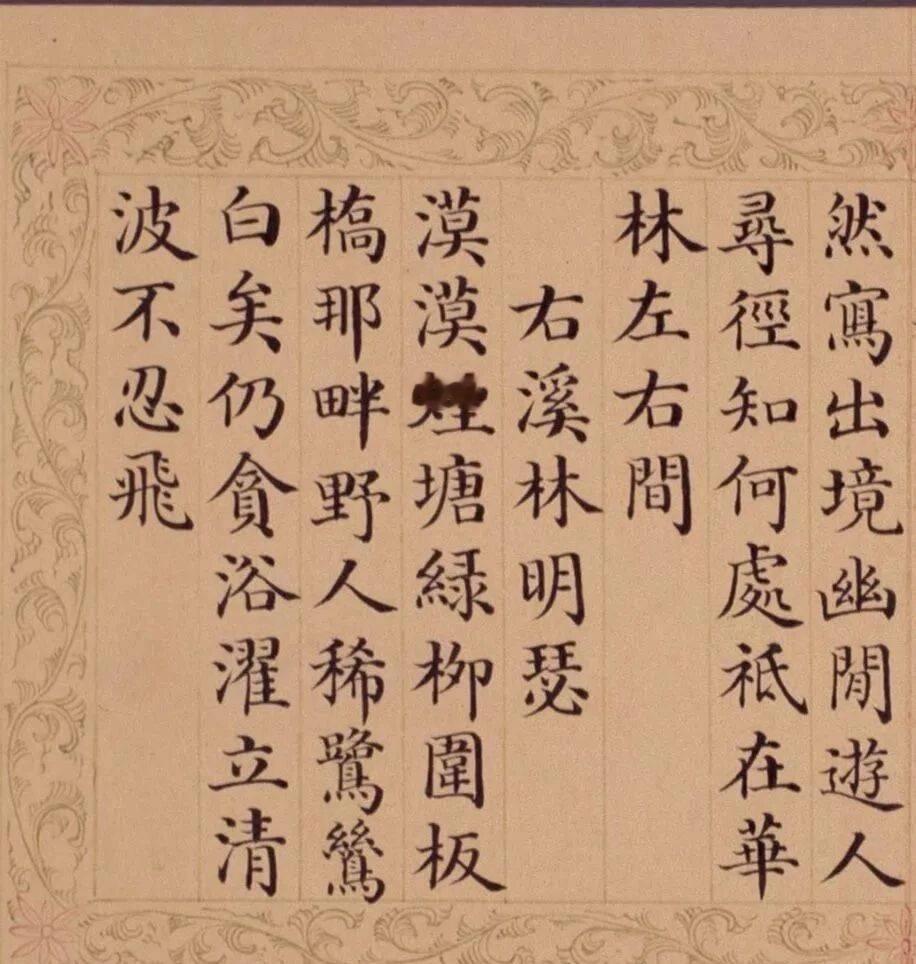 然寫出境幽閒遊人
尋徑知何處祇在華
林左右間
右溪林明瑟
漠漠塘緑柳圍板
橋那畔野人稀鷺鷥
白矣仍貪浴濯立清
波不忍飛